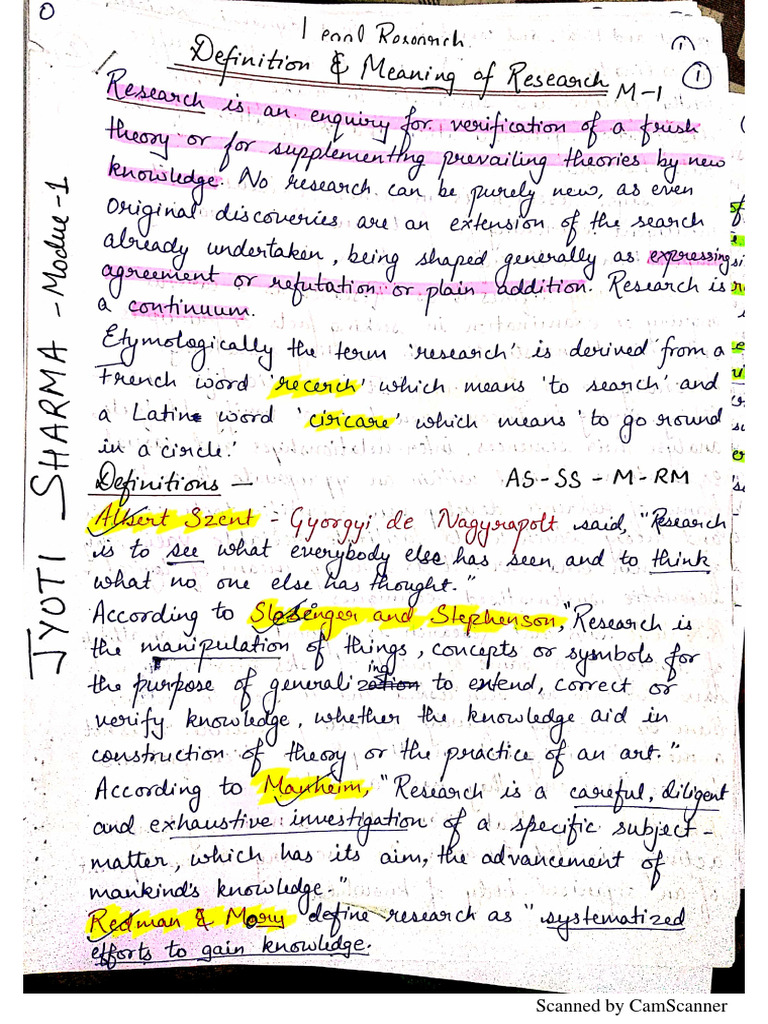 0
Legal Research
1
Definition & Meaning of Research M-1
1
Research is an enquiry for verification of a frish
theory or for supplementing prevailing theories by new
knowledge. No research can be purely new, as even
original discoveries are an extension of the search
already undertaken, being shaped generally as expressing
agreement or refutation or plain addition. Research is
a continuum.
Etymologically the term 'research' is derived from a
French word 'recerch' which means 'to search' and
a Latin word 'circare' which means 'to go round
in a circle.'
Definitions — AS-SS-M-RM
Albert Szent - Gyorgyi de Nagyrapolt said, "Research
is to see what everybody else has seen, and to think
what no one else has thought."
According to Slesinger and Stephenson, "Research is
the manipulation of things, concepts or symbols for
the purpose of generalizing to extend, correct or
verify knowledge, whether the knowledge aid in
construction of theory or the practice of an art."
According to Manheim, "Research is a careful, diligent
and exhaustive investigation of a specific subject-
matter, which has its aim, the advancement of
mankind's knowledge."
Redman & Mory define research as "systematized
efforts to gain knowledge.
JYOTI SHARMA - Modue-1
Scanned by CamScanner